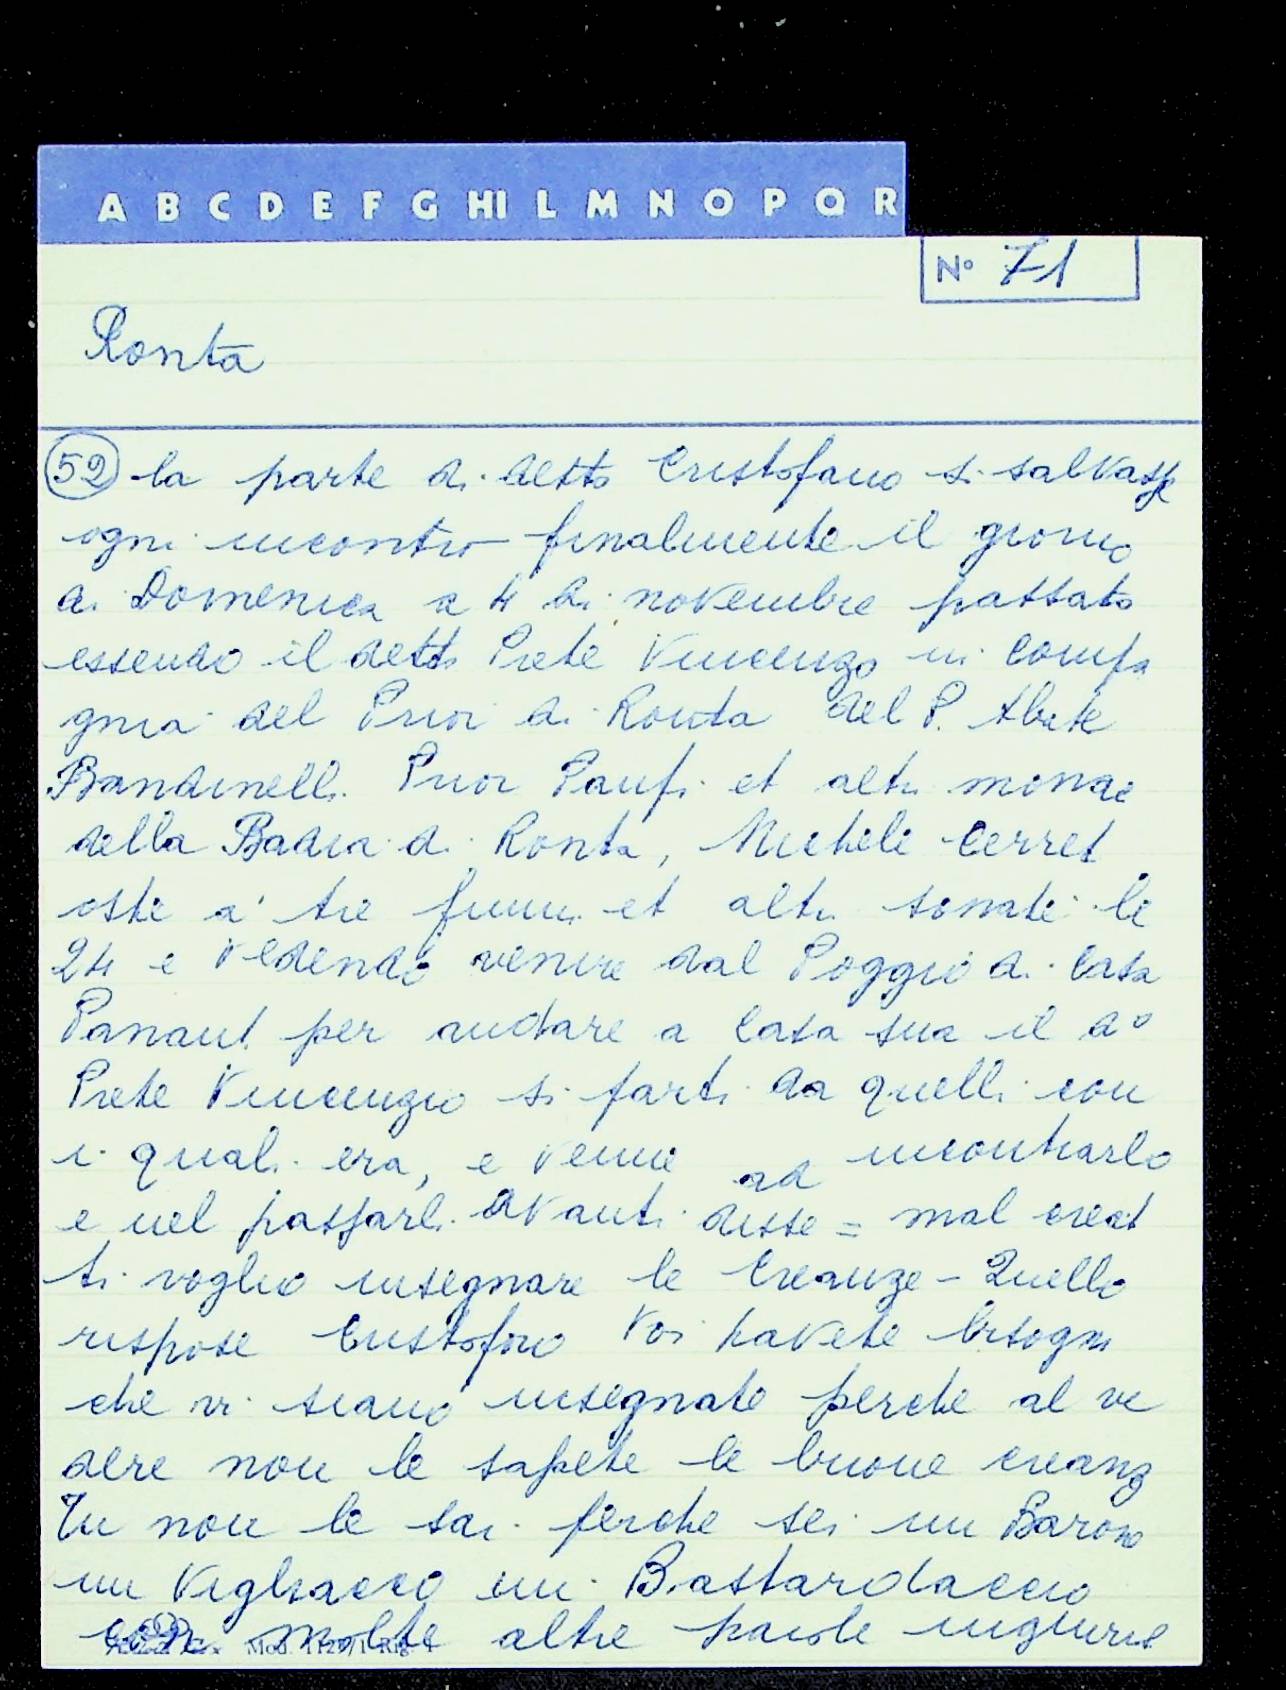 A B C D E F G HI L M N O P Q R
N° 71
Ronta
52 la parte di detto Cristofano si salvasse
ogni incontro finalmente il giorno
di Domenica a 4 di novembre passato
essendo il detto Prete Vincenzo in compa
gnia del Prior di Ronta del P. Abate
Bandinelli Prior Paufi et altri monac
della Badia di Ronta, Michele Cerret
oste a' tre fiumi et altri sonate le
24 e vedendo venire dal Poggio di Casa
Panaut per andare a Casa sua il do
Prete Vincenzio si partì da quelli con
i quali era, e venne ad incontrarlo
e nel passarli avanti disse = mal creat
ti voglio insegnare le Creanze - Quello
rispose Cristofno Voi havete bisogni
che vi siano insegnate perche al ve
dere non le sapete le buone creanz
Tu non le sai perche sei un Baron
un Vigliacco un Bastardaccio
con molte altre parole ingiurie
Mod. 1129/1 Rig. 4